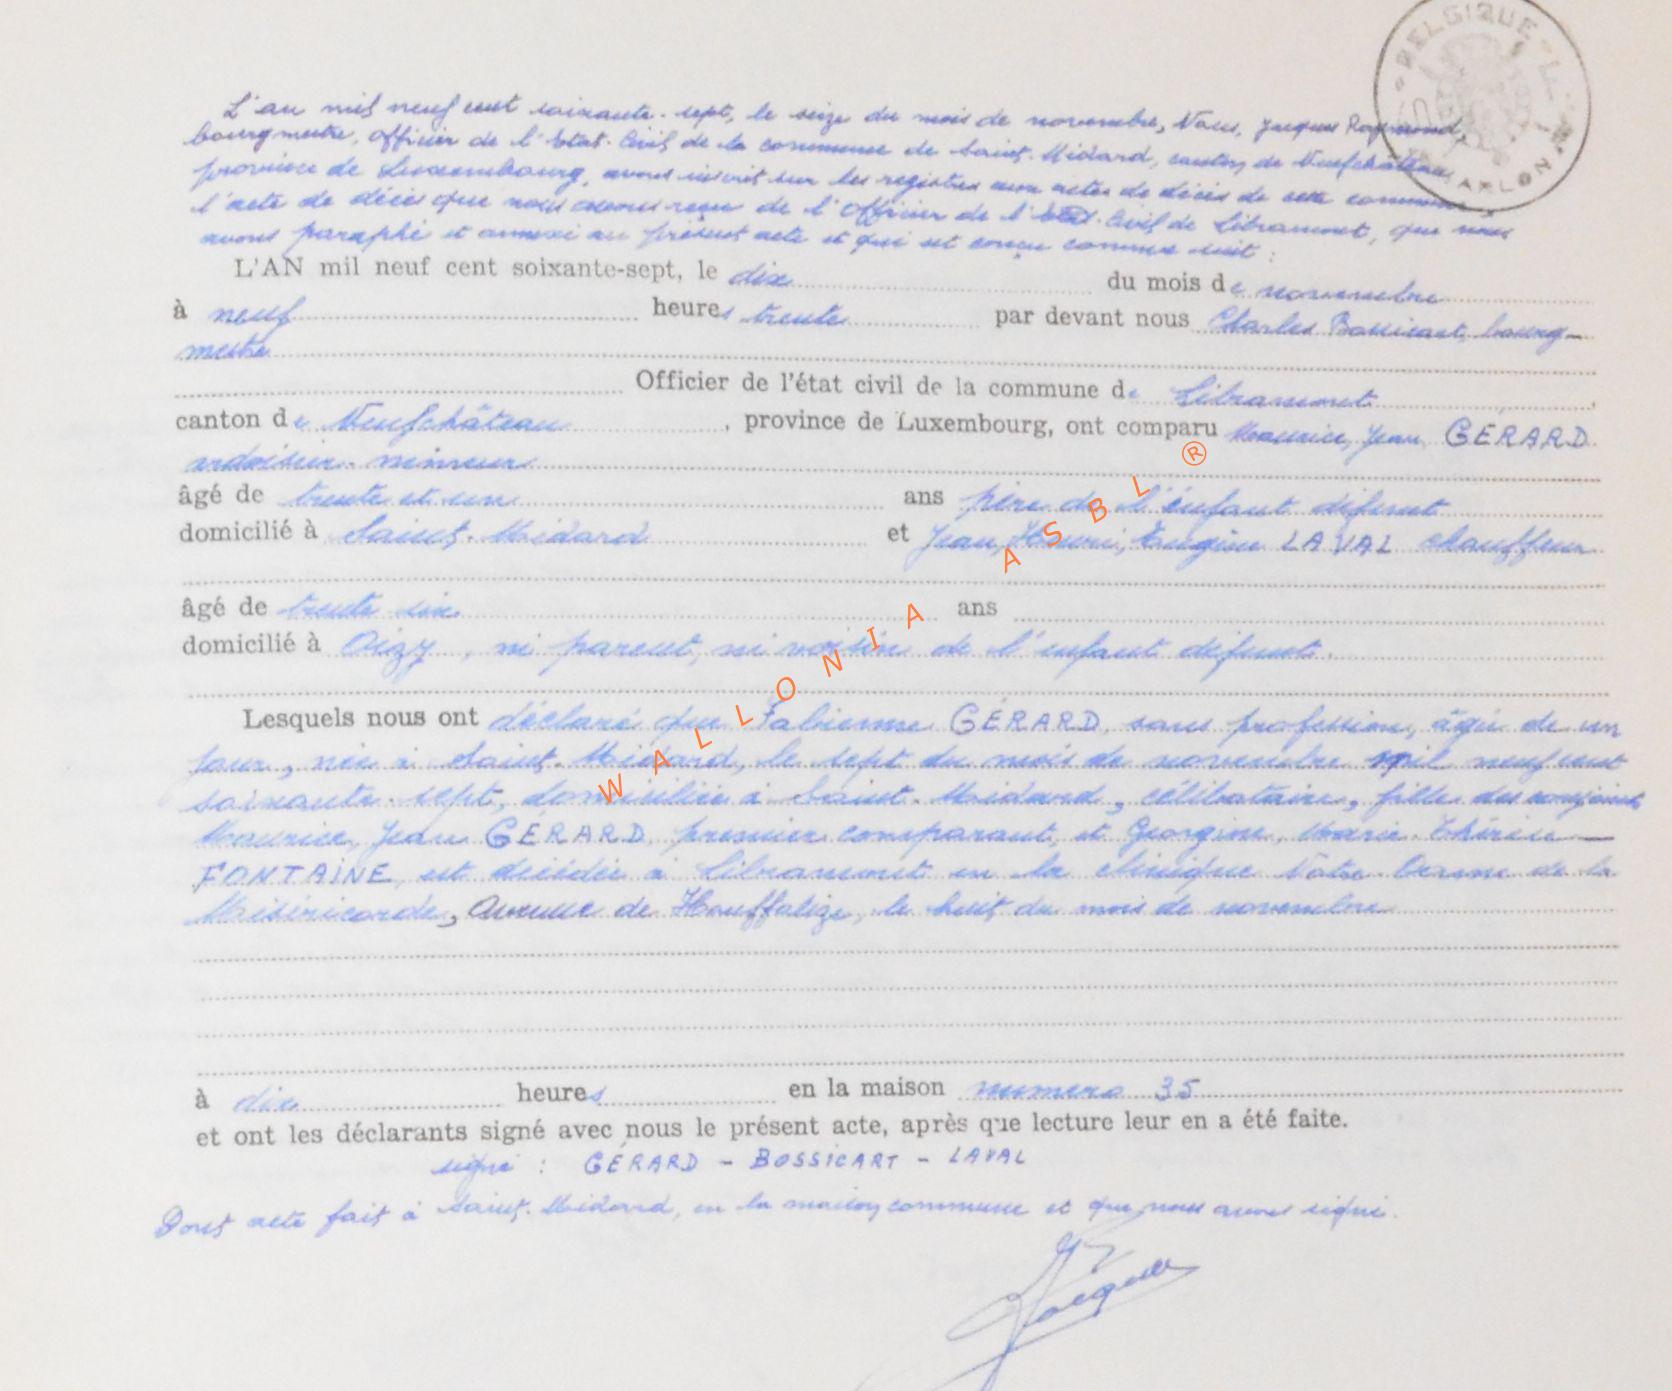 BELGIQUE
ARLON
L'an mil neuf cent soixante-sept, le seize du mois de novembre, Nous, Jacques Raymond,
bourgmestre, officier de l'Etat-Civil de la commune de Saint-Médard, canton de Neufchâteau,
province de Luxembourg, avons inscrit sur les registres aux actes de décès de cette commune,
l'acte de décès que nous avons reçu de l'Officier de l'Etat-Civil de Libramont, que nous
avons paraphé et annexé au présent acte et qui est conçu comme suit :
L'AN mil neuf cent soixante-sept, le dix du mois de novembre
à neuf heures trente par devant nous Charles Bossicart, bourg-
mestre
Officier de l'état civil de la commune de Libramont
canton de Neufchâteau, province de Luxembourg, ont comparu Maurice, Jean GÉRARD
ardoisier-mineur
âgé de trente et un ans père de l'enfant défunt
domicilié à Saint-Médard et Jean, Henri, Eugène LAVAL chauffeur
âgé de trente six ans
domicilié à Oizy, ni parent, ni voisin de l'enfant défunt.
Lesquels nous ont déclaré que Fabienne GÉRARD, sans profession, âgée de un
jour, née à Saint-Médard, le sept du mois de novembre mil neuf cent
soixante-sept, domiciliée à Saint-Médard, célibataire, fille des conjoints
Maurice, Jean GÉRARD, premier comparant, et Georgine, Marie-Thérèse
FONTAINE, est décédée à Libramont en la clinique Notre-Dame de la
Miséricorde, Avenue de Houffalize, le huit du mois de novembre
à dix heures en la maison numero 35
et ont les déclarants signé avec nous le présent acte, après que lecture leur en a été faite.
signé : GÉRARD - BOSSICART - LAVAL
Dont acte fait à Saint-Médard, en la maison commune et que nous avons signé.
Jacques
WALLONIA ASBL ®